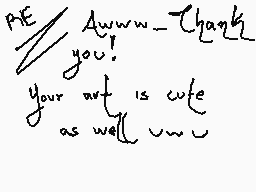 RE Awww_Thank
you!
Your art is cute
as well uwu